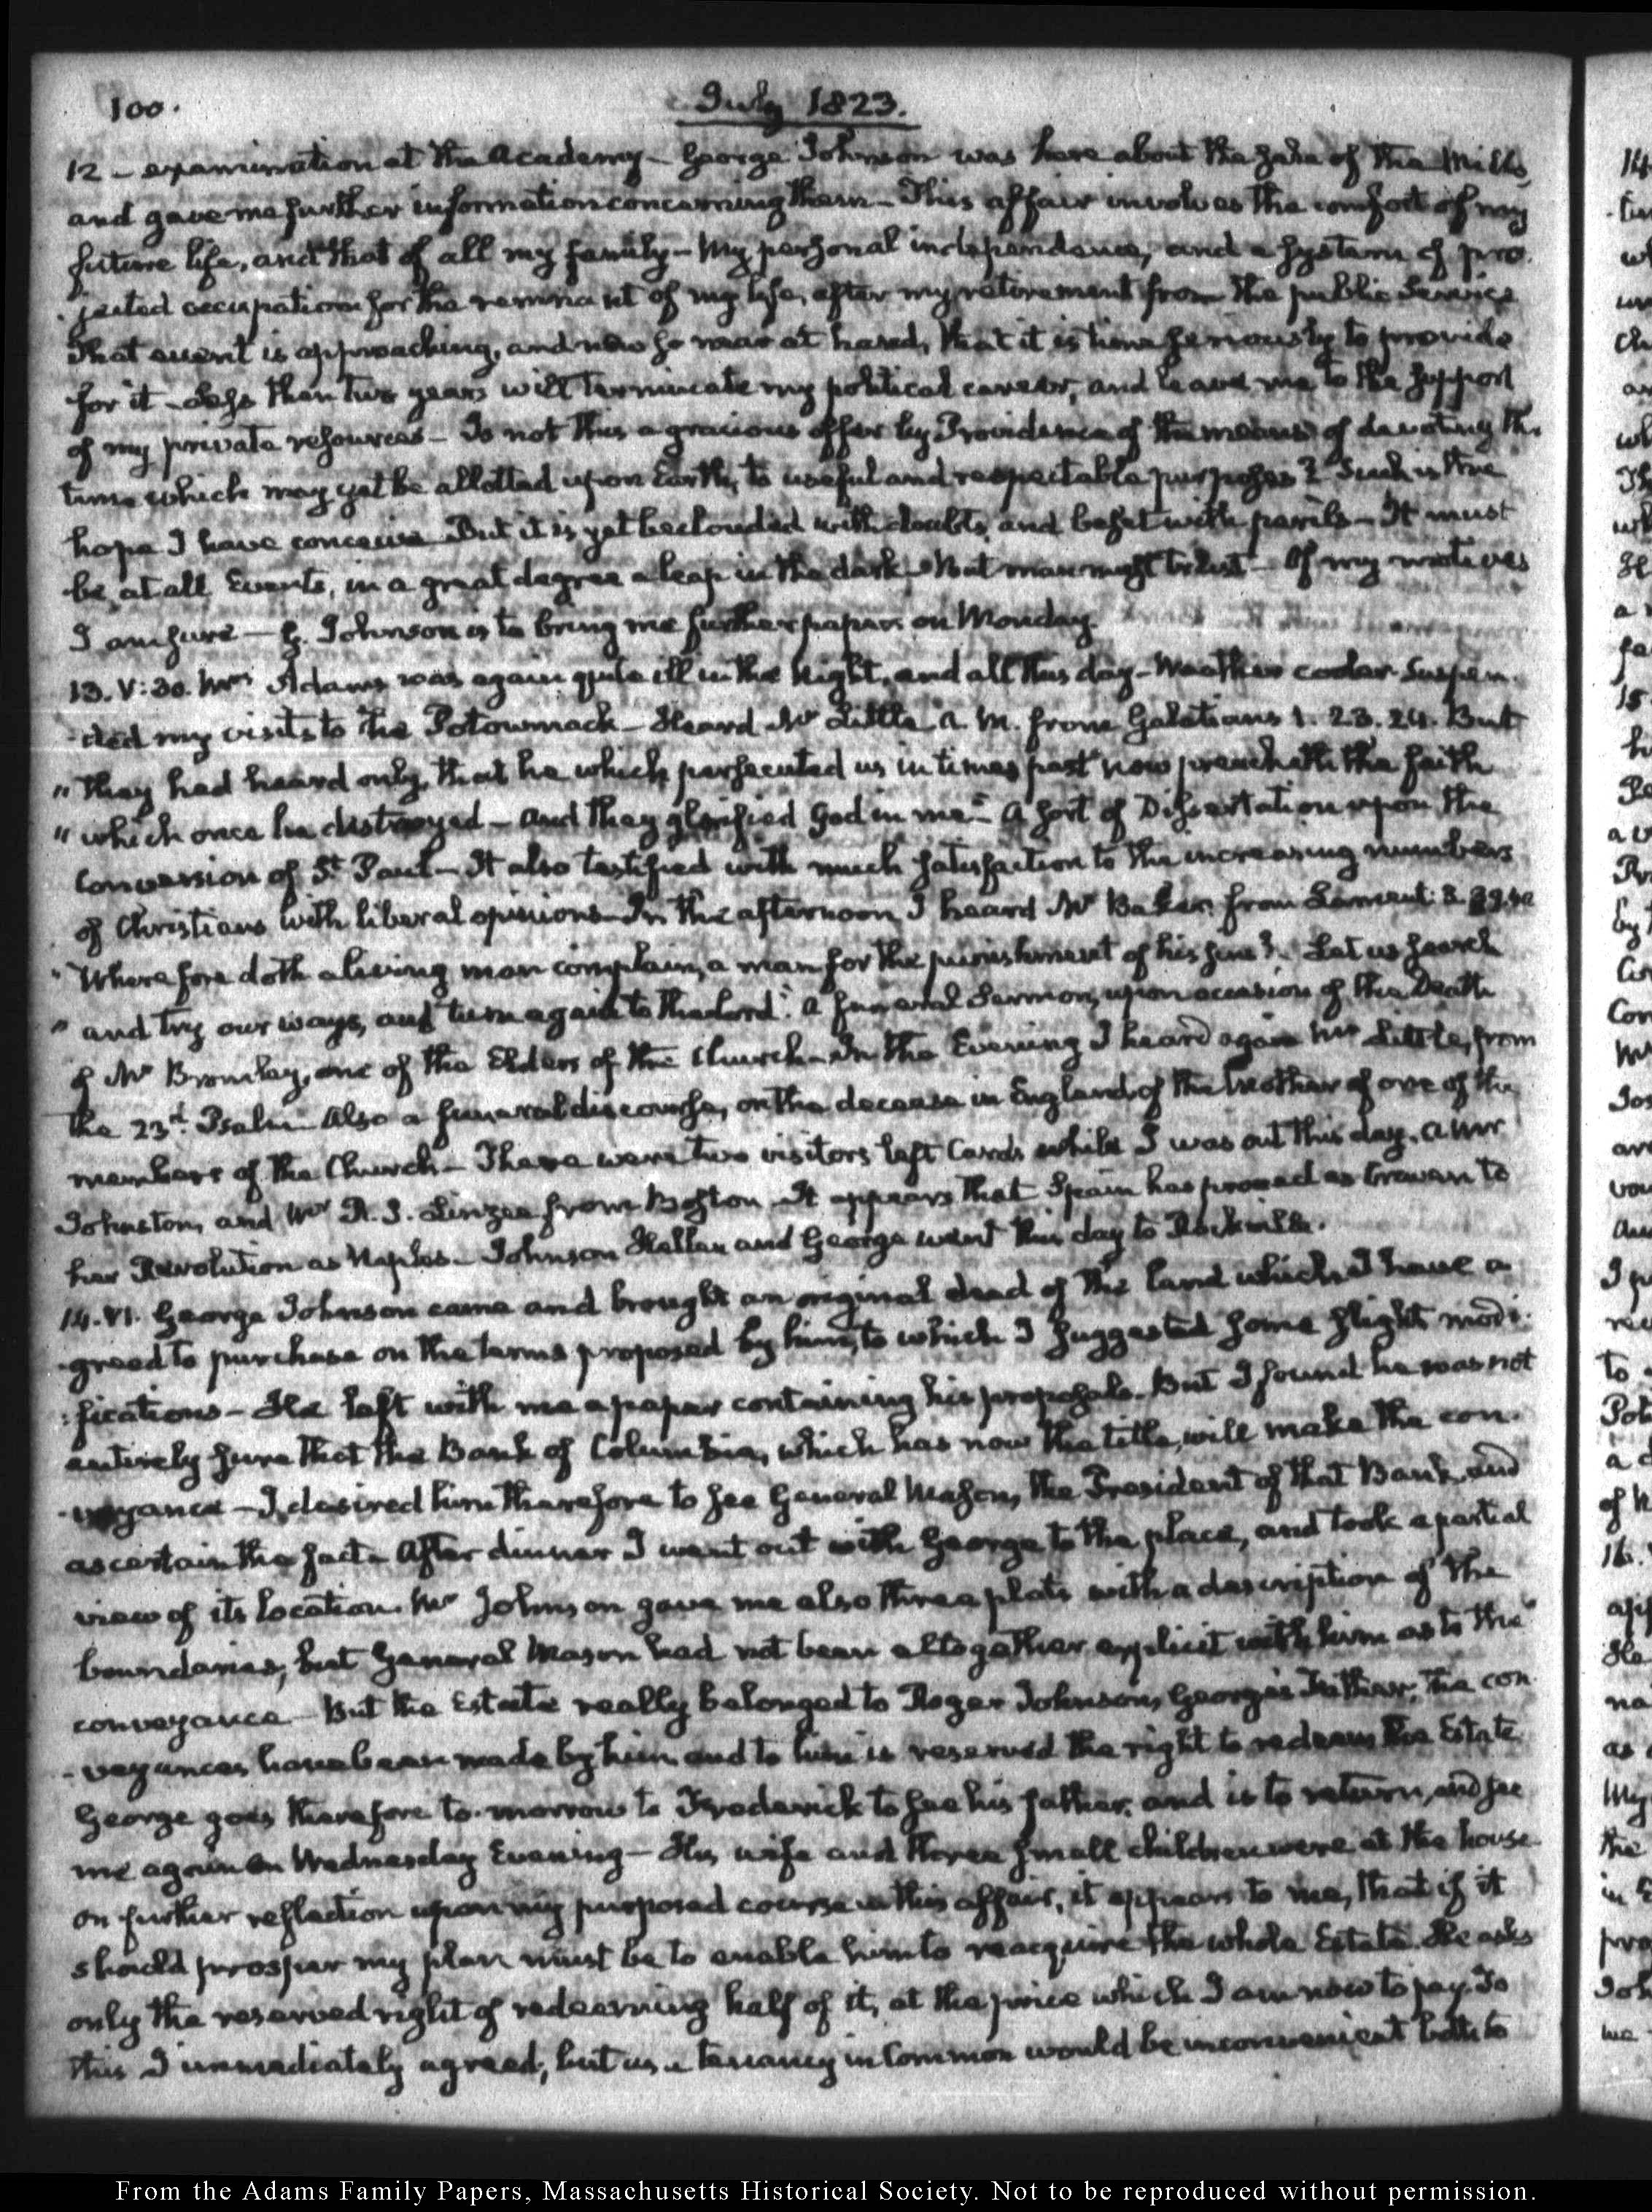 100.
July 1823.
12 - examination at the Academy - George Johnson was here about the sale of the Mills,
and gave me further information concerning them - This affair involves the comfort of my
future life, and that of all my family - My personal independence, and a system of pro-
-jected occupation for the remnant of my life, after my retirement from the public service
That event is approaching, and now so near at hand, that it is time seriously to provide
for it - Less than two years will terminate my political career, and leave me to the support
of my private resources - Is not this a gracious offer by Providence of the means of devoting the
time which may yet be allotted upon Earth, to useful and respectable purposes? Such is the
hope I have conceived But it is yet beclouded with doubts, and beset with perils - It must
be, at all Events, in a great degree a leap in the dark - But man must trust - Of my motives
I am sure - G. Johnson is to bring me further papers on Monday.
13. V:30. Mrs Adams was again quite ill in the Night, and all this day - Weather cooler. Suspen-
-ded my visits to the Potowmack - Heard Mr Little A.M. from Galatians 1. 23. 24. But
"they had heard only, that he which persecuted us in times past now preacheth the faith
"which once he destroyed - and they glorified God in me" - A sort of Dissertation upon the
Conversion of St Paul - It also testified with much satisfaction to the increasing numbers
of Christians with liberal opinions - In the afternoon I heard Mr Baker, from Lament: 3. 39.40
"Wherefore doth a living man complain, a man for the punishment of his sins? Let us search
"and try our ways, and turn again to the Lord." A funeral Sermon, upon occasion of the Death
of Mr Bromley, one of the Elders of the Church - In the Evening I heard again Mr Little, from
the 23d. Psalm - Also a funeral discourse, on the decease in England, of the Mother of one of the
members of the Church - There were two visitors left Cards while I was out this day. A Mr
Johnston, and Mr R. I. Linzee from Boston - It appears that Spain has proved as Craven to
her Revolution as Naples - Johnson Hellen and George went this day to Rockville.
14. VI. George Johnson came and brought an original deed of the land which I have a-
-greed to purchase on the terms proposed by him, to which I suggested some slight modi-
-fications - He left with me a paper containing his proposals - But I found he was not
entirely sure that the Bank of Columbia, which has now the title, will make the con-
-veyance - I desired him therefore to see General Mason, the President of that Bank and
ascertain the fact - After dinner I went out with George to the place, and took a partial
view of its location. Mr Johnson gave me also three plats with a description of the
boundaries, but General Mason had not been altogether explicit with him as to the
conveyance - But the Estate really belonged to Roger Johnson, George's Father, the con-
-veyances have been made by him and to him is reserved the right to redeem the Estate
George goes therefore to-morrow to Frederick to see his father, and is to return, and see
me again on Wednesday Evening - His wife and three small children were at the house
on further reflection upon my proposed course in this affair, it appears to me, that if it
should prosper my plan must be to enable him to reacquire the whole Estate. He asks
only the reserved right of redeeming half of it, at the price which I am now to pay. To
this I immediately agreed; but as a tenancy in Common would be inconvenient both to
From the Adams Family Papers, Massachusetts Historical Society. Not to be reproduced without permission.